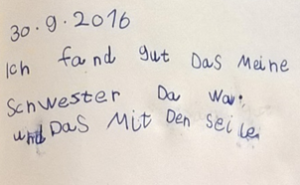 30.9.2016
Ich fand gut Das Meine
Schwester Da War
und Das Mit Den Seilen